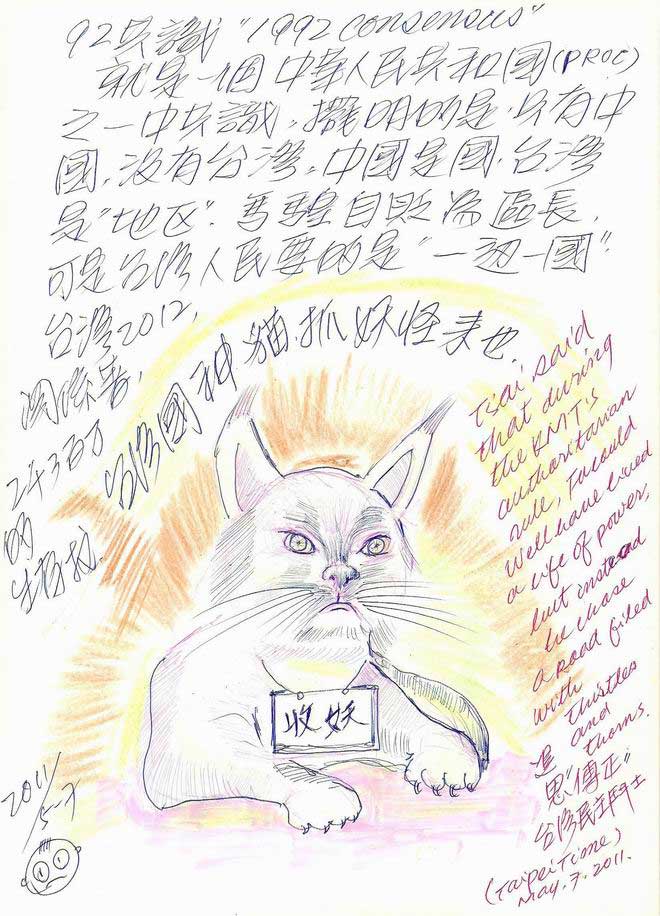 92共識 "1992 consensus"
就是一個中華人民共和國(PROC)
之一中共識,擺明的是,只有中
國,沒有台灣,中國是國,台灣
是"地区".馬騜自貶為區長,
可是台灣人民要的是"一边一國".
台灣2012,
関係著,
2千3百万
的
生存权
台湾國神猫,抓妖怪来也.
Tsai said
that during
the KMT's
authoritarian
rule, Fu could
well have lived
a life of power,
but instead
he chose
a road filled
with thistles
and thorns.
追思"傅正"
台湾民主鬥士
(Taipei Time)
May.7.2011.
收妖
2011/5-7